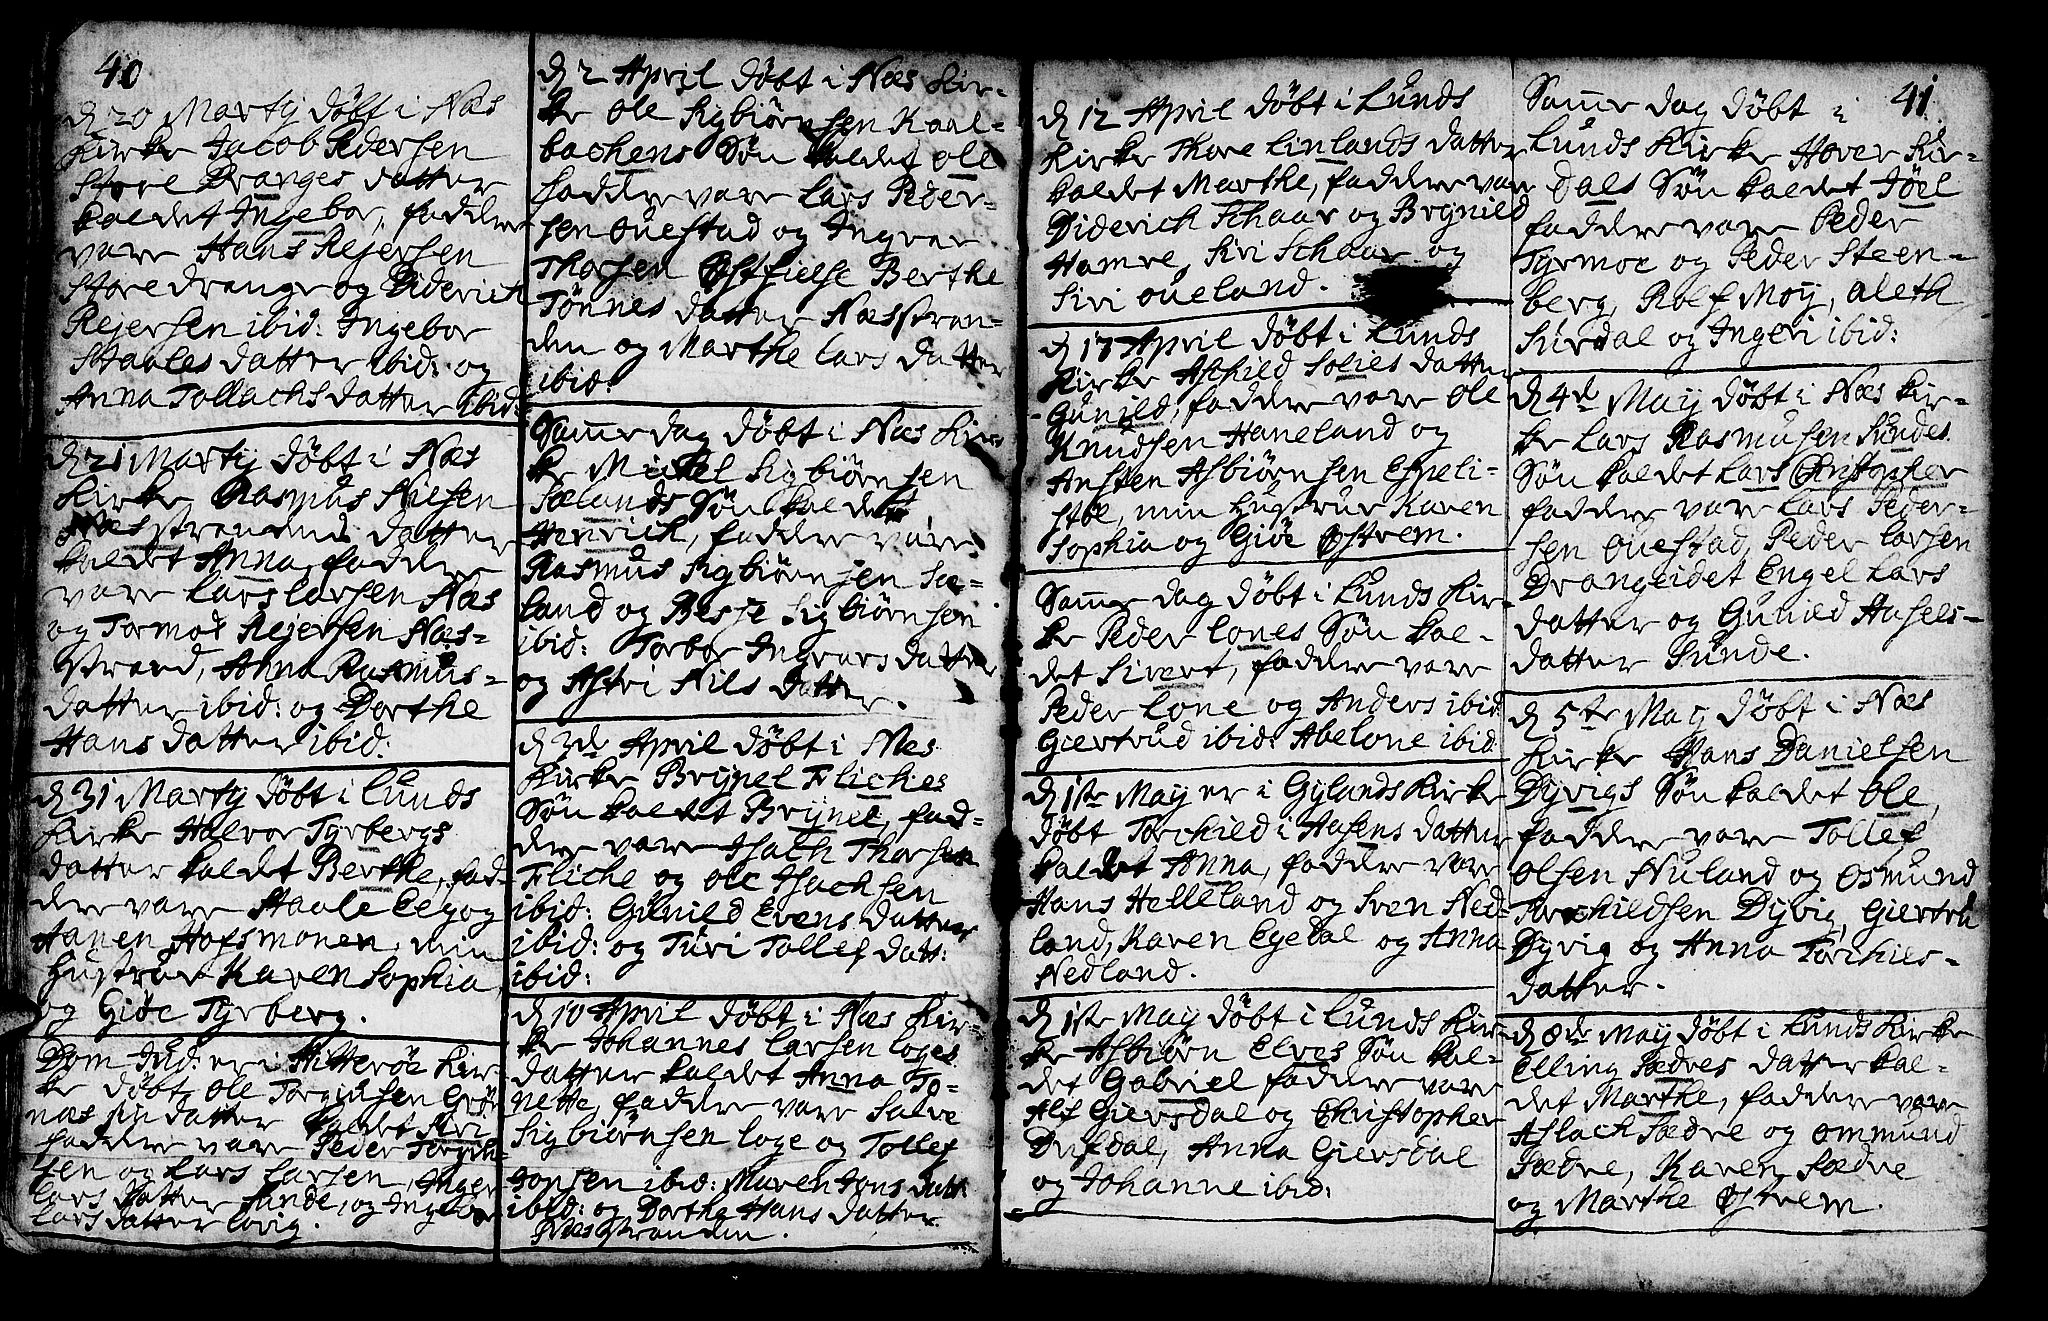 40
d 20 Martij døbt i Næs
Kirke Jacob Pedersen
Store Dranges datter
kaldet Ingebor, faddre
vare Hans Rejersen
Store drange og Diderich
Rejersen ibid: Ingebor
Staalesdatter ibid: og
Anna Tollachsdatter ibid:
d 21 Martij døbt i Næs
Kirke Rasmus Nilsen
Næsstrandens datter
kaldet Anna, faddre
vare Lars Larsen Næs
og Tormod Rejersen Næs-
strand, Anna Rasmus-
datter ibid: og Dorthe
Hans datter ibid:
d 31 Martij døbt i Lunds
Kirke Halvor Tyrbergs
datter kaldet Berthe, fad-
dre vare Staale Eeg og
Hanen Hofsmonen, min
Hustrue Karen Sophia,
og Giøe Tyrberg.
Dom Jud: er i Hitterøe Kir-
ke døbt Ole Torgiusen Grøn-
næs sin datter kaldet Siri
faddre vare Peder Torgiu-
sen og Lars Larsen, Inger
Lars datter Sande, og Ingebor
Larsdatter Lovig.
d 2 April døbt i Næs Kir-
ke Ole Sigbiørnsen Kaal-
bachens Søn kaldet Ole
faddre vare Lars Peder-
sen Ouestad og Ingvar
Thorsen Østfielse Berthe
Tønnes datter Næsstran-
den og Marthe Lars datter
ibid:
Samme dag døbt i Næs Kir-
ke Michel Sigbiørnsen
Sælands Søn kaldet
Henrich, faddre vare
Rasmus Sigbiørnsen Sæ-
land og Besse Sigbiørnsen
ibid: Torbor Ingvars datter
og Astri Nils datter.
d 3de April døbt i Næs
Kirke Brynel Fliches
Søn kaldet Brynel, fad-
dre vare Isach Thorsen
Fliche og Ole Isachsen
ibid: Gunild Evens datter
ibid: og Turi Tollef datt:
ibid:
d 10 April døbt i Næs Kir-
ke Johannes Larsen Loges
datter kaldet Anna To-
nette, faddre vare Salve
Sigbiørnsen Loge og Tollef
Jonsen ibid: Maren Jons datt
ibid: og Dorthe Hans datter
Næsstranden.
41
d 12 April døbt i Lunds
Kirke Thore Linlands datter
kaldet Marthe, faddre vare
Diderich Schaar og Brynild
Hamre, Siri Schaar og
Siri Oueland.
d 17 April døbt i Lunds
Kirke Aschild Solies datter
Gunild, faddre vare Ole
Knudsen Haneland og
Ansten Asbiørnsen Espeli-
støe, min Hustrue Karen
Sophia og Giøe Østrem.
Samme dag døbt i Lunds Kir-
ke Peder Lones Søn kal-
det Sivert, faddre vare
Peder Lone og Anders ibid
Giertrud ibid: Abelone ibid:
d 1ste May er i Gylands Kirke
døbt Torchild i Aasens datter
kaldet Anna, faddre vare
Hans Helleland og Sven Ned-
land, Karen Egedal og Anna
Nedland.
d 1ste May døbt i Lunds Kir-
ke Asbiørn Elves Søn kal-
det Gabriel faddre vare
Alf Giersdal og Christopher
Drifdal, Anna Giersdal
og Johanne ibid:
Samme dag døbt i
Lunds Kirke Hover Sir-
dals Søn kaldet Jöel
faddre vare Peder
Tyrmoe og Peder Steen-
berg, Rolf Moÿ, Aleth
Sirdal og Ingeri ibid:
d 4de May døbt i Næs Kir-
ke Lars Rasmusen Sundes
Søn kaldet Lars Christopher
faddre vare Lars Peder-
sen Ouestad, Peder Larsen
Drangeidet Engel Lars
datter og Gunild Axsels-
datter Sunde.
d 5te May døbt i Næs
Kirke Hans Danielsen
Dyvigs Søn kaldet Ole,
faddre vare Tollef
Olsen Nuland og Osmund
Torchildsen Dyvig, Giertru
Dyvig og Anna Torchies-
datter.
d 8de May døbt i Lunds Kirke
Elling Sædres datter kal-
det Marthe, faddre vare
Aslach Sædre og Ommund
Sædre, Karen Sædre
og Marthe Østrem.